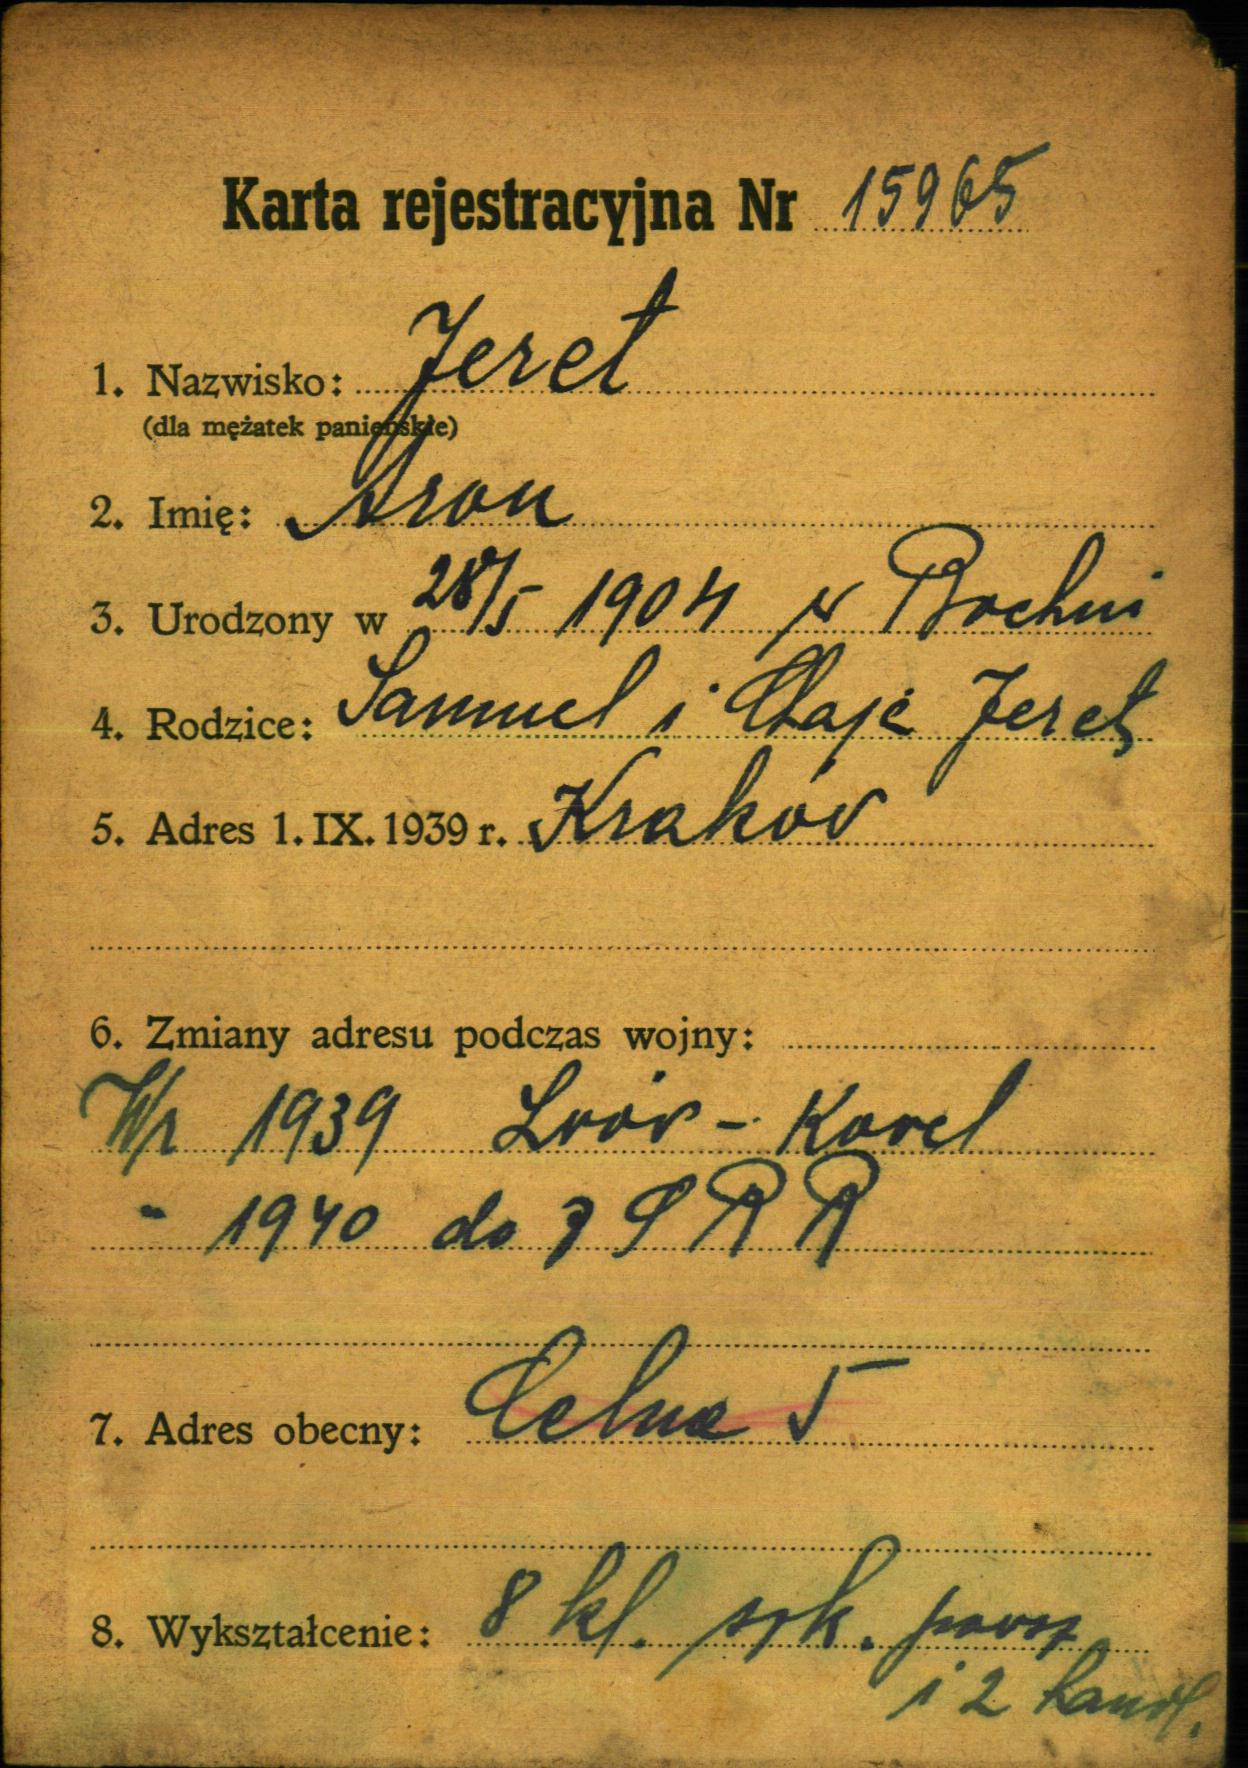 Karta rejestracyjna Nr 15965
1. Nazwisko: Jeret
(dla mężatek panieńskie)
2. Imię: Aron
3. Urodzony w 28/5 1904 w Bochni
4. Rodzice: Samuel i Chaje Jeret
5. Adres 1. IX. 1939 r. Kraków
6. Zmiany adresu podczas wojny:
Wr 1939 Lwów - Kowel
" 1940 do ZSRR
7. Adres obecny: Celna 5
8. Wykształcenie: 8 kl. szk. powsz
i 2 handl.